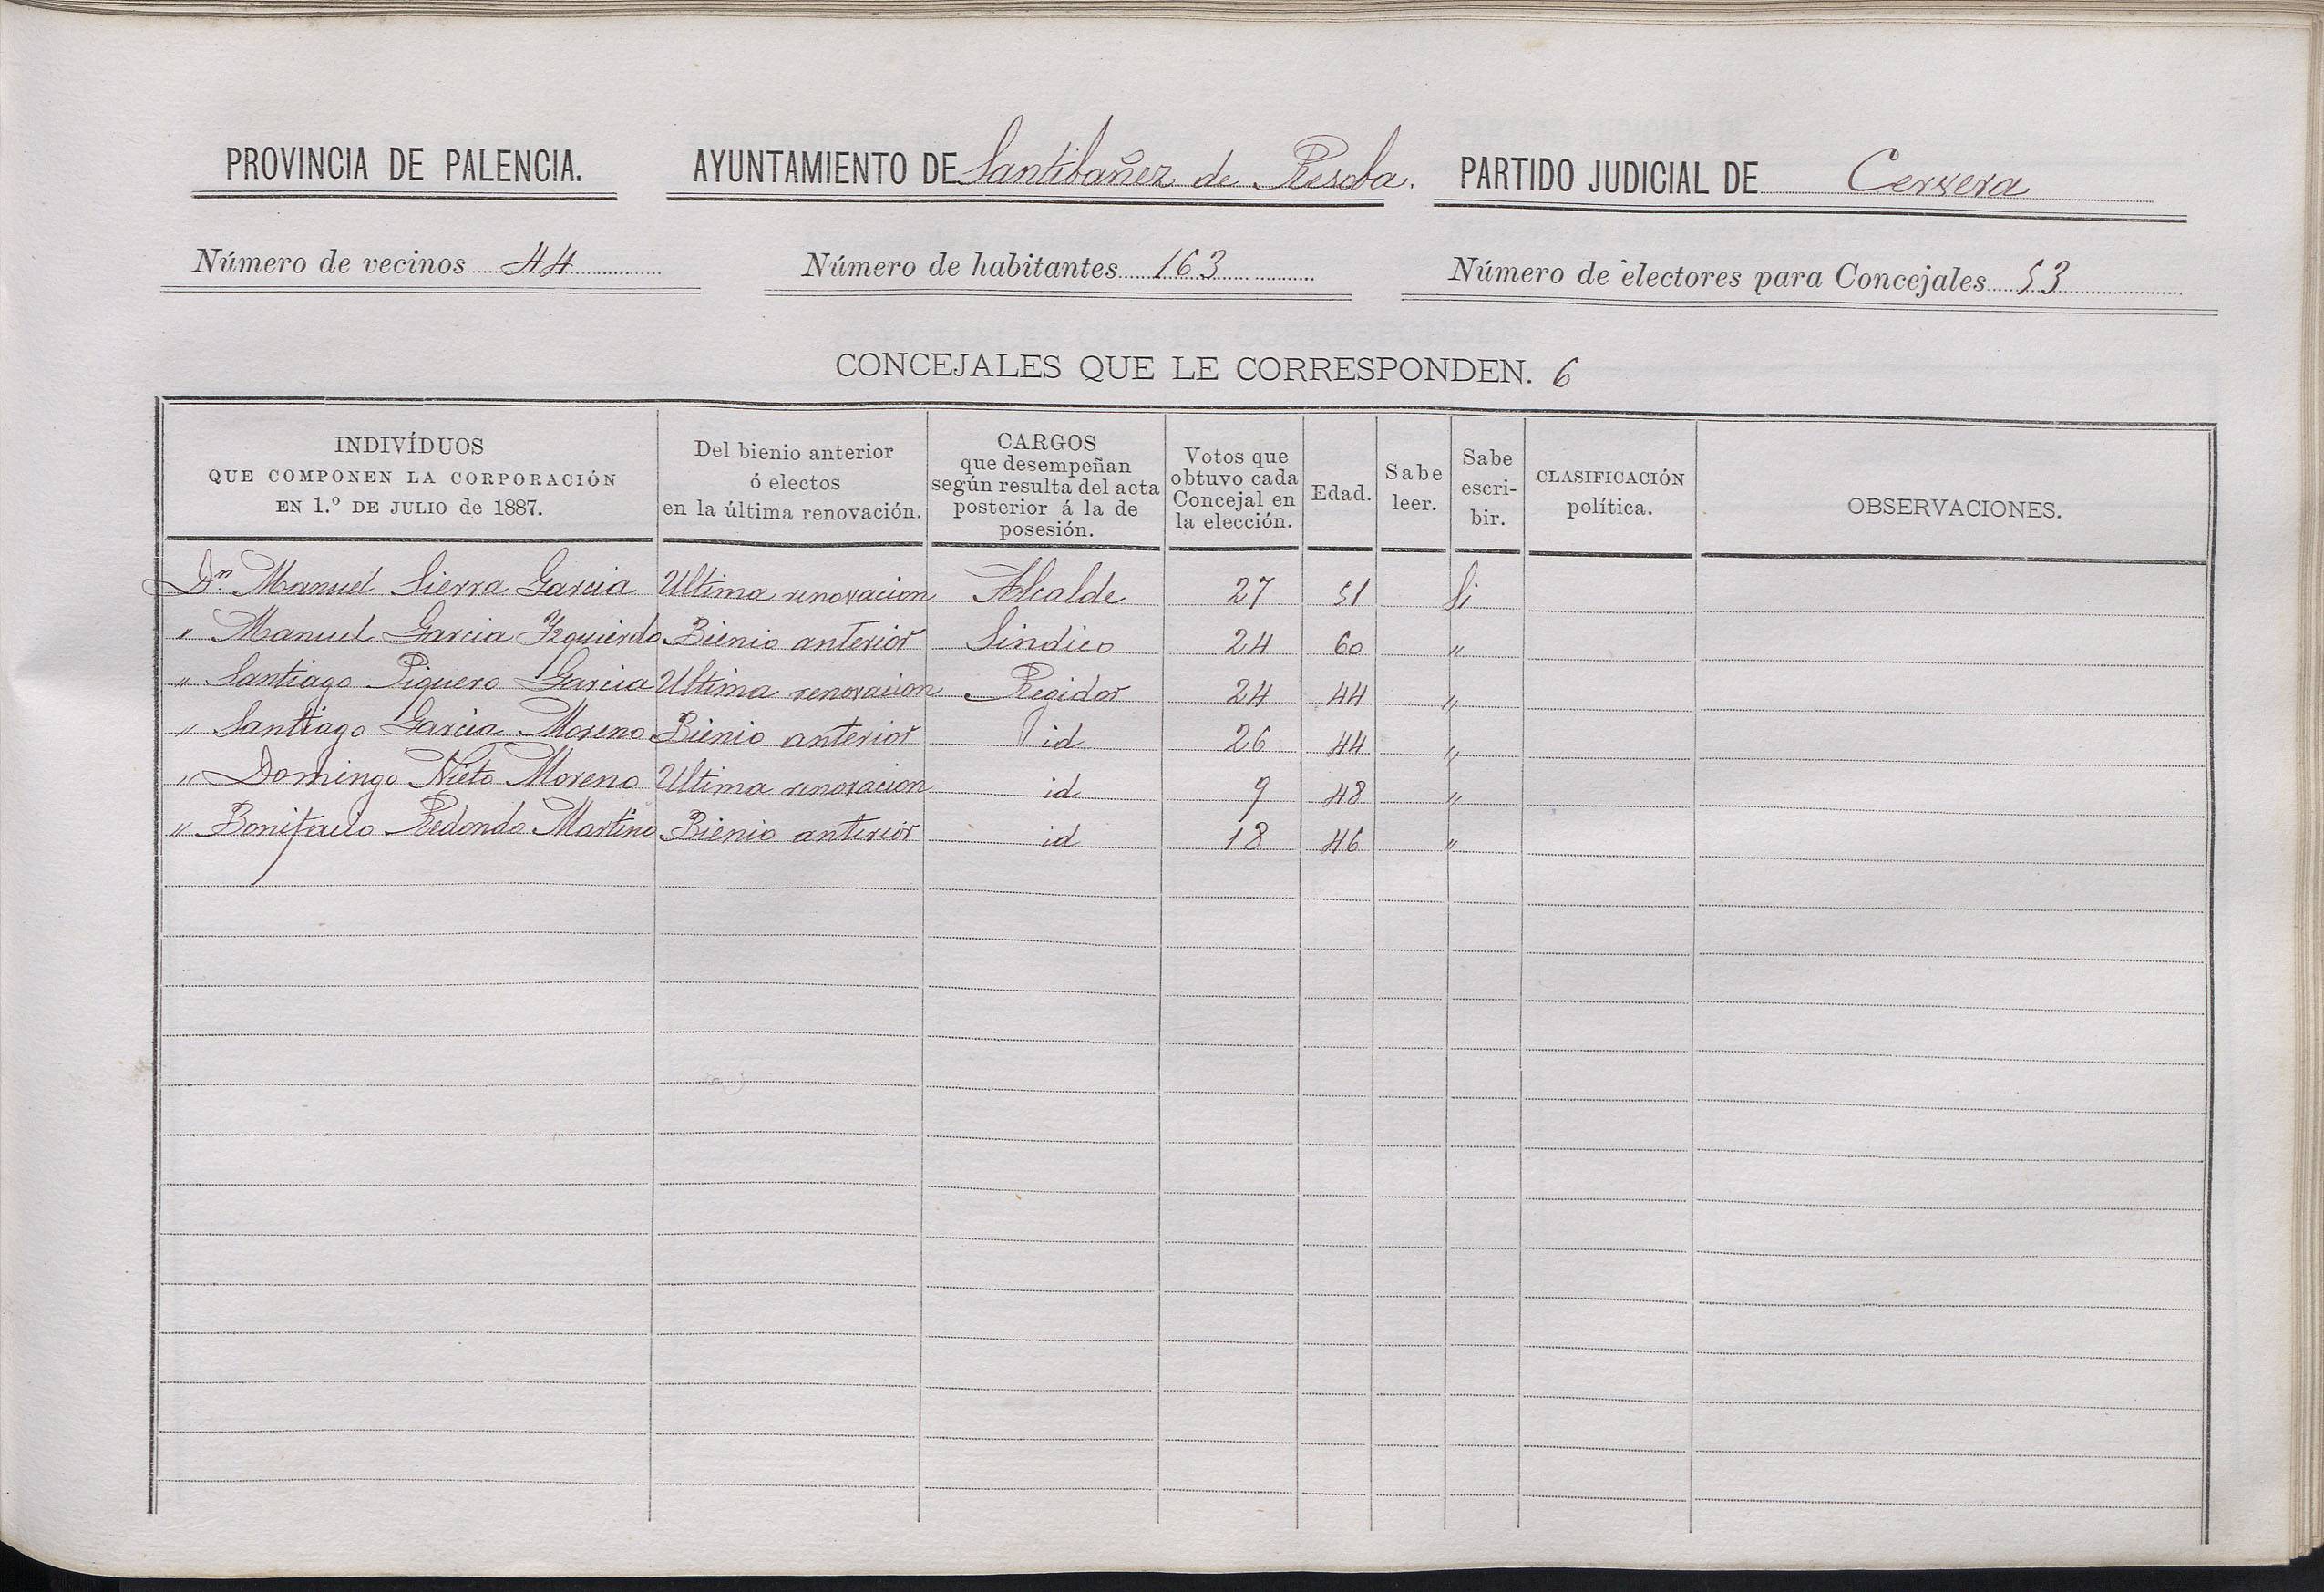 PROVINCIA DE PALENCIA. AYUNTAMIENTO DE Santibañez de Resoba. PARTIDO JUDICIAL DE Cervera
Número de vecinos 44 Número de habitantes 163 Número de electores para Concejales 53
CONCEJALES QUE LE CORRESPONDEN. 6
INDIVÍDUOS
QUE COMPONEN LA CORPORACIÓN
EN 1.º DE JULIO de 1887.
Del bienio anterior
ó electos
en la última renovación.
CARGOS
que desempeñan
según resulta del acta
posterior á la de
posesión.
Votos que
obtuvo cada
Concejal en
la elección.
Edad.
Sabe
leer.
Sabe
escri-
bir.
CLASIFICACIÓN
política.
OBSERVACIONES.
Dn Manuel Sierra Garcia Ultima renovacion Alcalde 27 51 Si
" Manuel Garcia Yzquierdo Bienio anterior Sindico 24 60 "
" Santiago Piquero Garcia Ultima renovacion Regidor 24 44 "
" Santiago Garcia Moreno Bienio anterior id 26 44 "
" Domingo Nieto Moreno Ultima renovacion id 9 48 "
" Bonifacio Redondo Martino Bienio anterior id 18 46 "